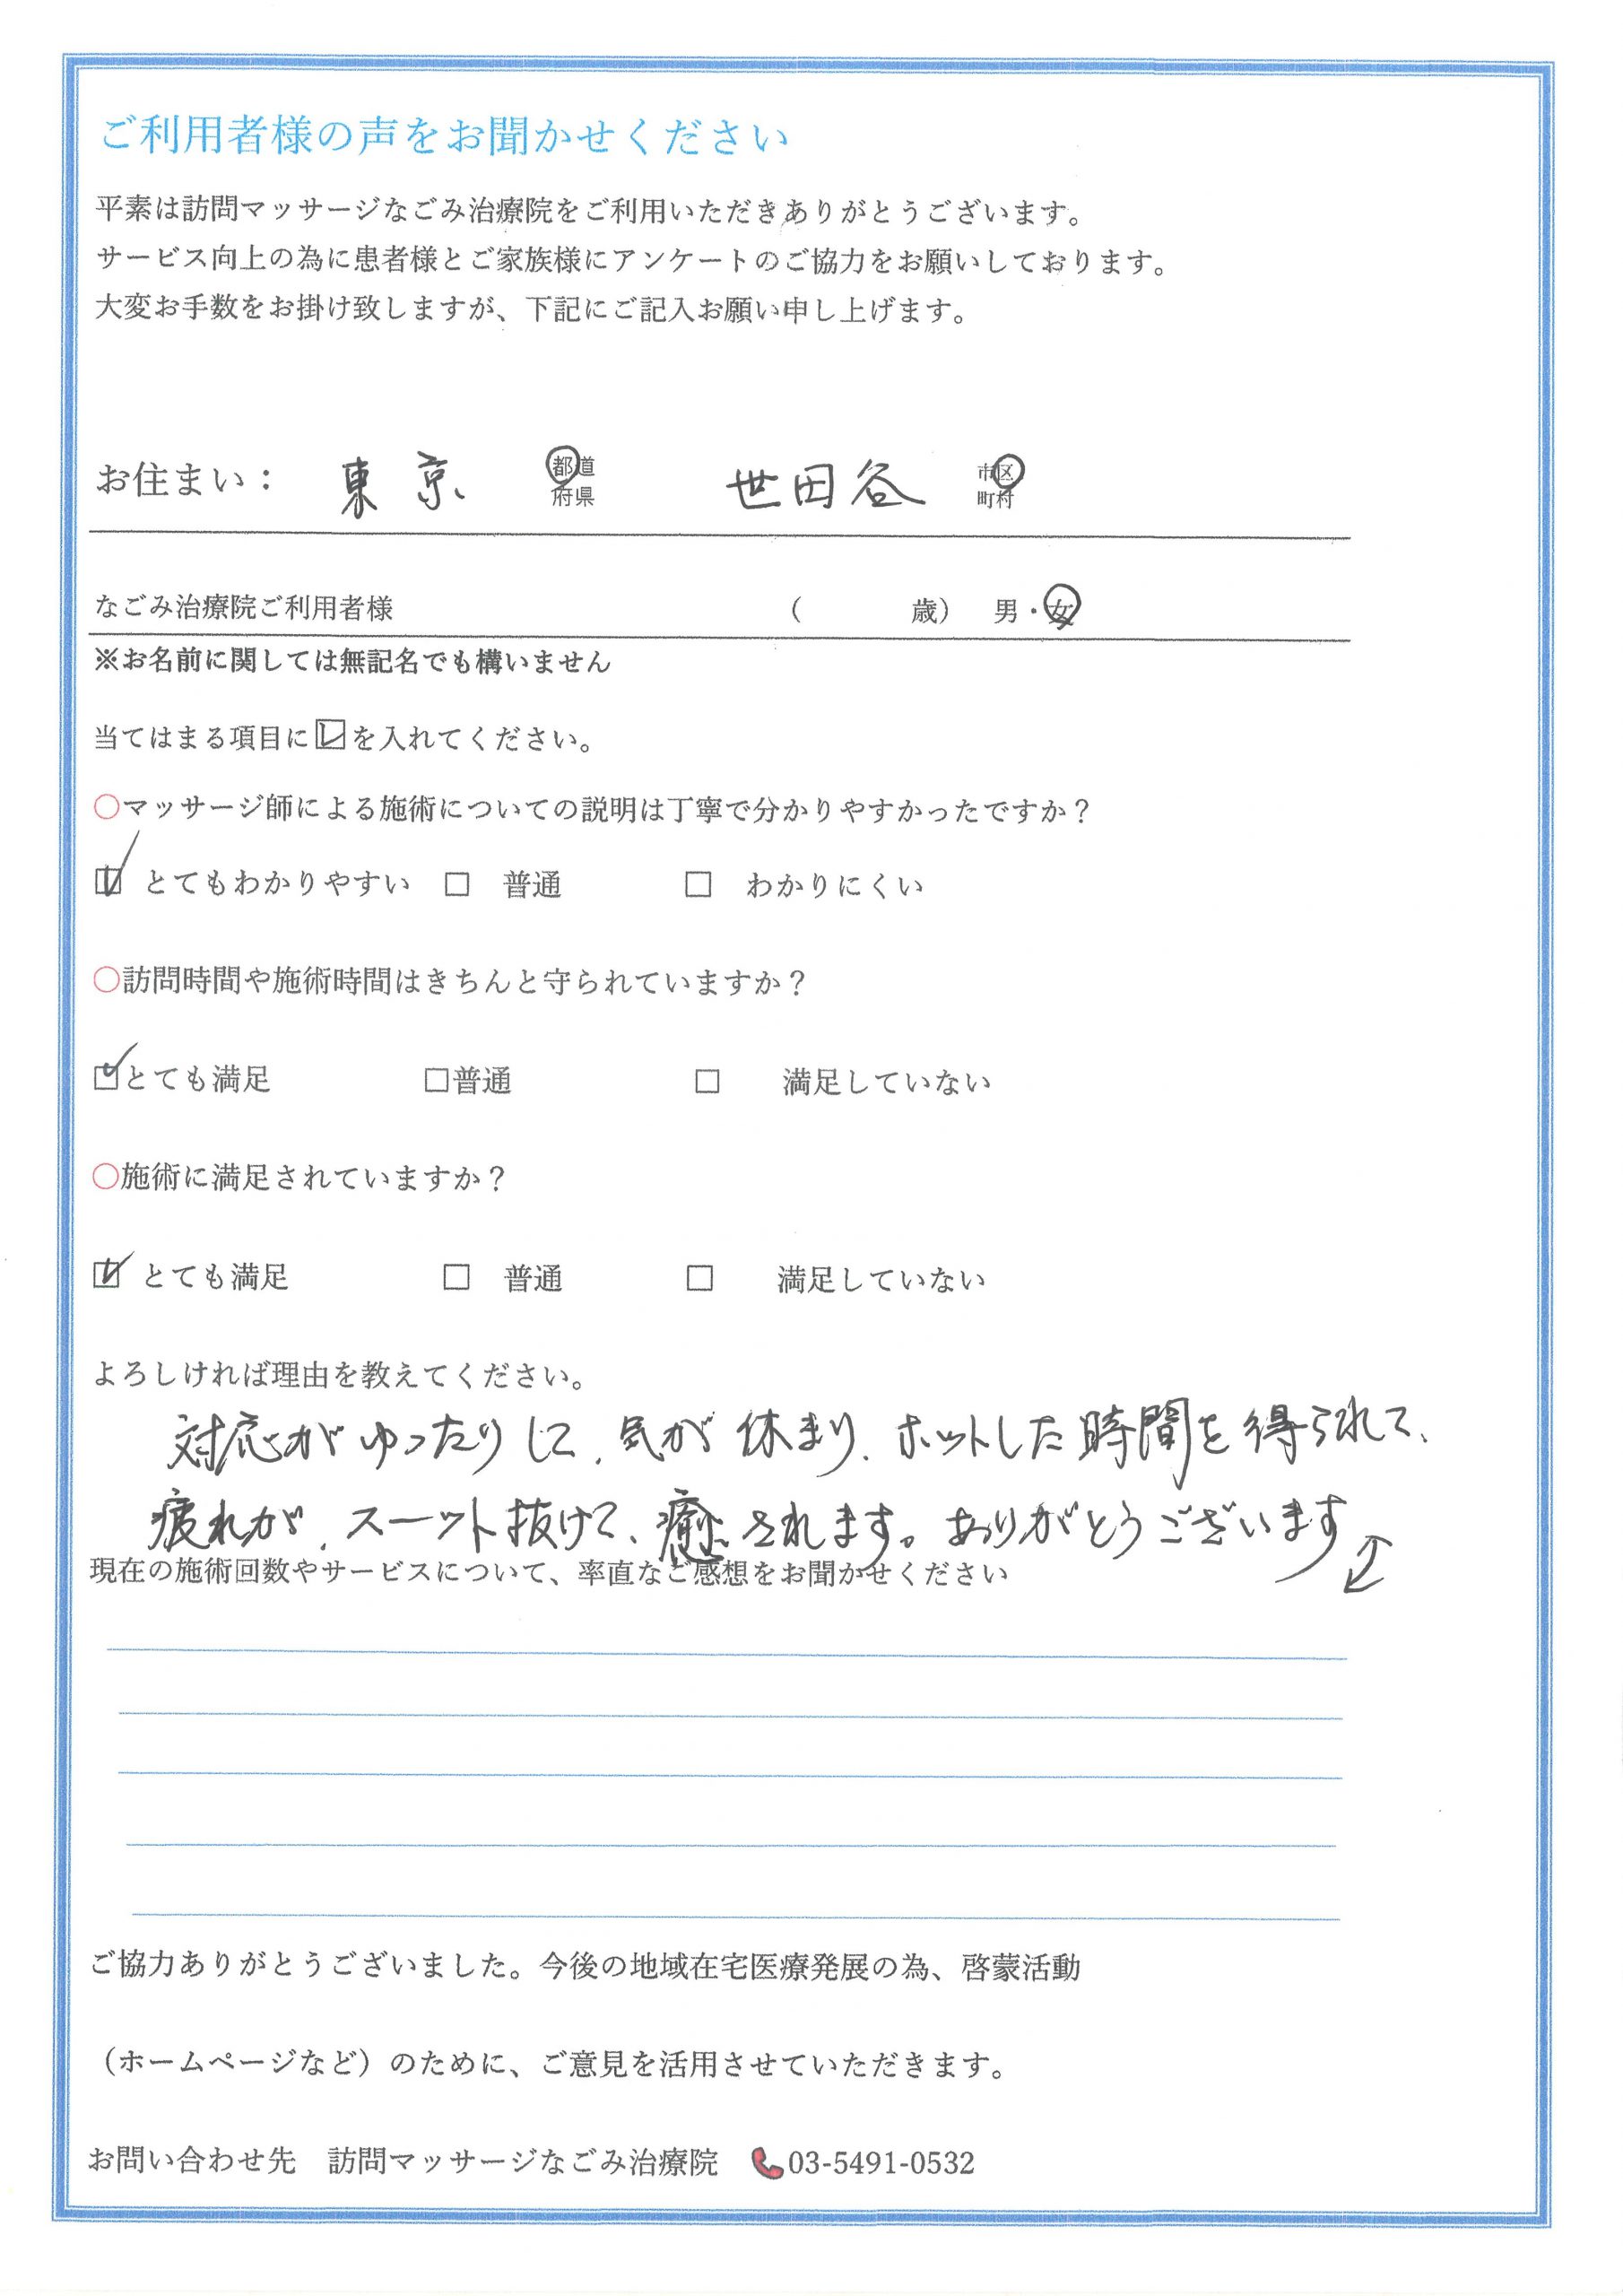 ご利用者様の声をお聞かせください
平素は訪問マッサージなごみ治療院をご利用いただきありがとうございます。
サービス向上の為に患者様とご家族様にアンケートのご協力をお願いしております。
大変お手数をお掛け致しますが、下記にご記入お願い申し上げます。
お住まい： 東京 都道府県 世田谷 市区町村
なごみ治療院ご利用者様 （ 歳） 男・女
※お名前に関しては無記名でも構いません
当てはまる項目に☑を入れてください。
○マッサージ師による施術についての説明は丁寧で分かりやすかったですか？
☑ とてもわかりやすい □ 普通 □ わかりにくい
○訪問時間や施術時間はきちんと守られていますか？
☑とても満足 □普通 □ 満足していない
○施術に満足されていますか？
☑ とても満足 □ 普通 □ 満足していない
よろしければ理由を教えてください。
対応がゆったりして、気が休まり、ホットした時間を得られて、
疲れが、スーット抜けて、癒されます。ありがとうございます
現在の施術回数やサービスについて、率直なご感想をお聞かせください
ご協力ありがとうございました。今後の地域在宅医療発展の為、啓蒙活動
（ホームページなど）のために、ご意見を活用させていただきます。
お問い合わせ先 訪問マッサージなごみ治療院 03-5491-0532